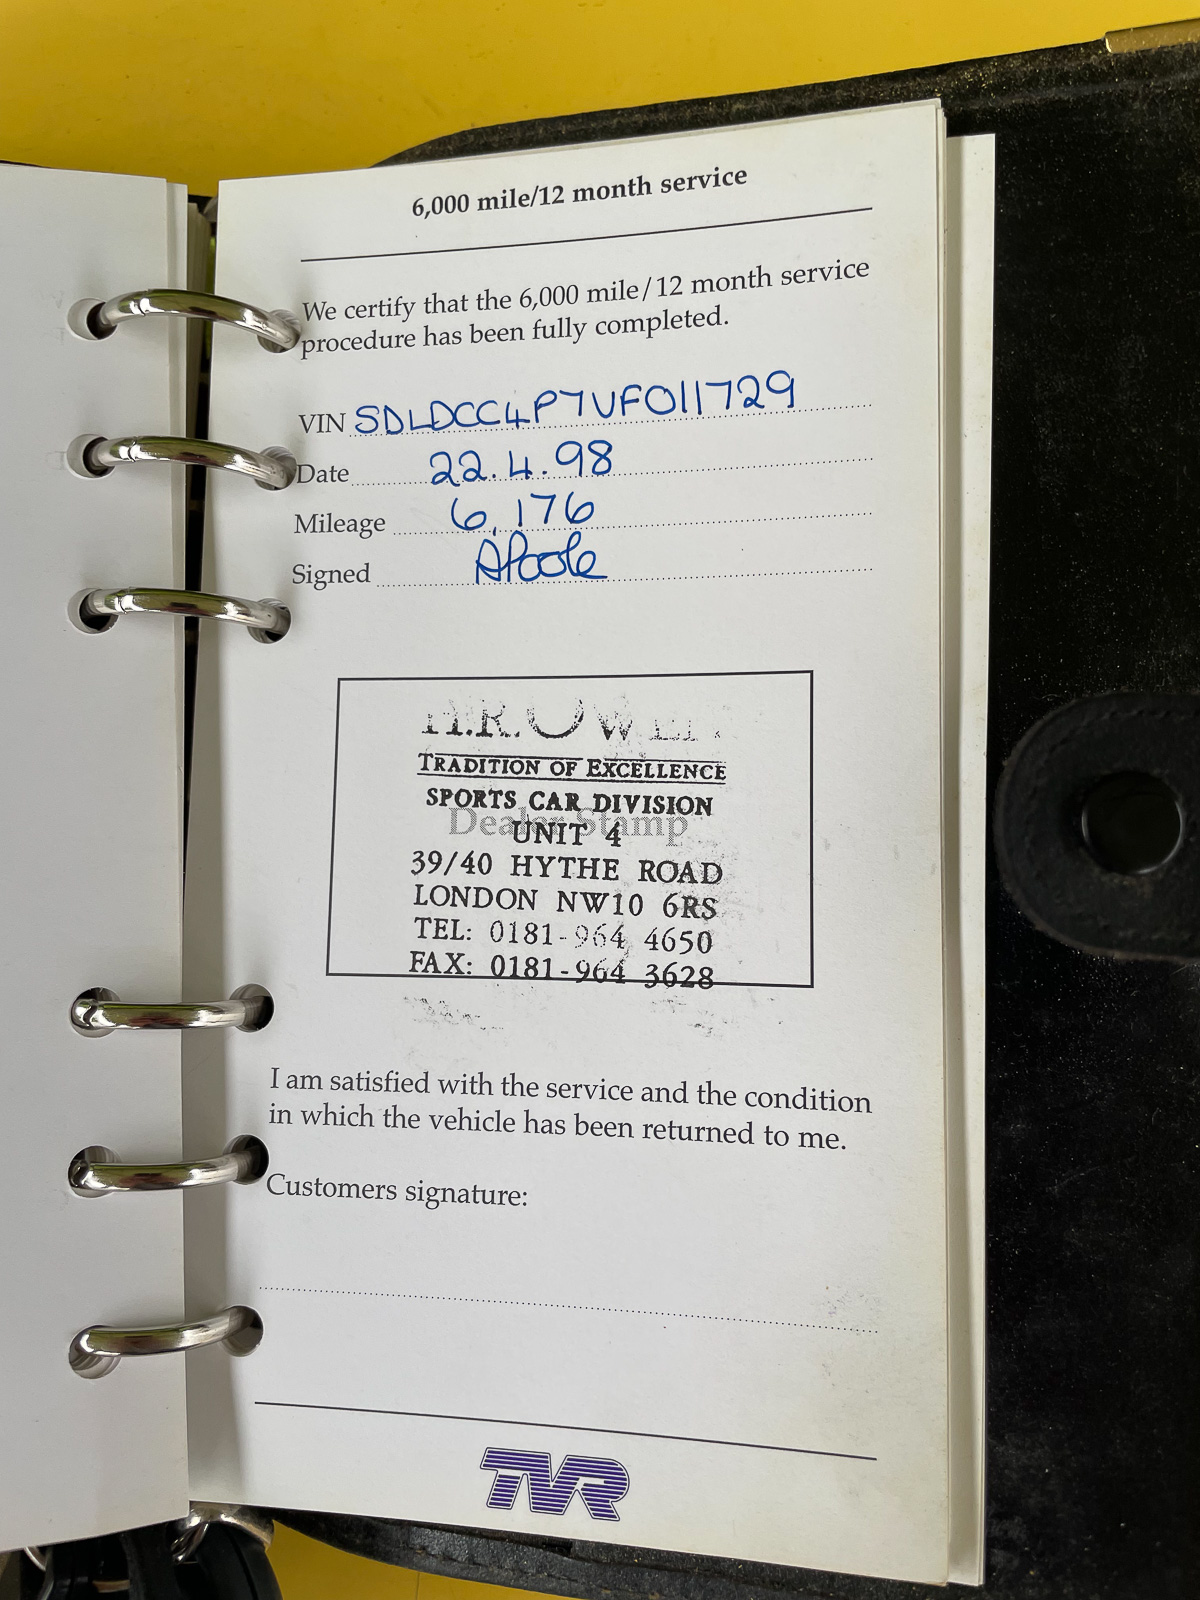 6,000 mile/12 month service
We certify that the 6,000 mile/12 month service
procedure has been fully completed.
VIN SDLDCC4P7VF011729
Date 22.4.98
Mileage 6,176
Signed APoole
H.R. OWEN
TRADITION OF EXCELLENCE
SPORTS CAR DIVISION
Dealer Stamp
UNIT 4
39/40 HYTHE ROAD
LONDON NW10 6RS
TEL: 0181-964 4650
FAX: 0181-964 3628
I am satisfied with the service and the condition
in which the vehicle has been returned to me.
Customers signature:
TVR